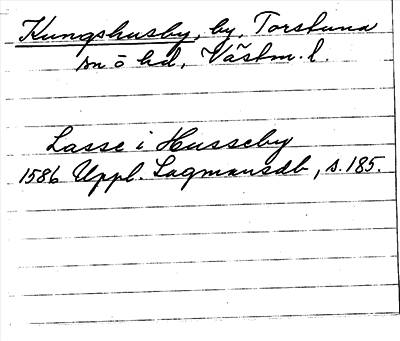 Kungshusby, by, Torstuna
sn o hd, Västm. l.
Lasse i Husseby
1586 Uppl. Lagmansdb, s. 185.